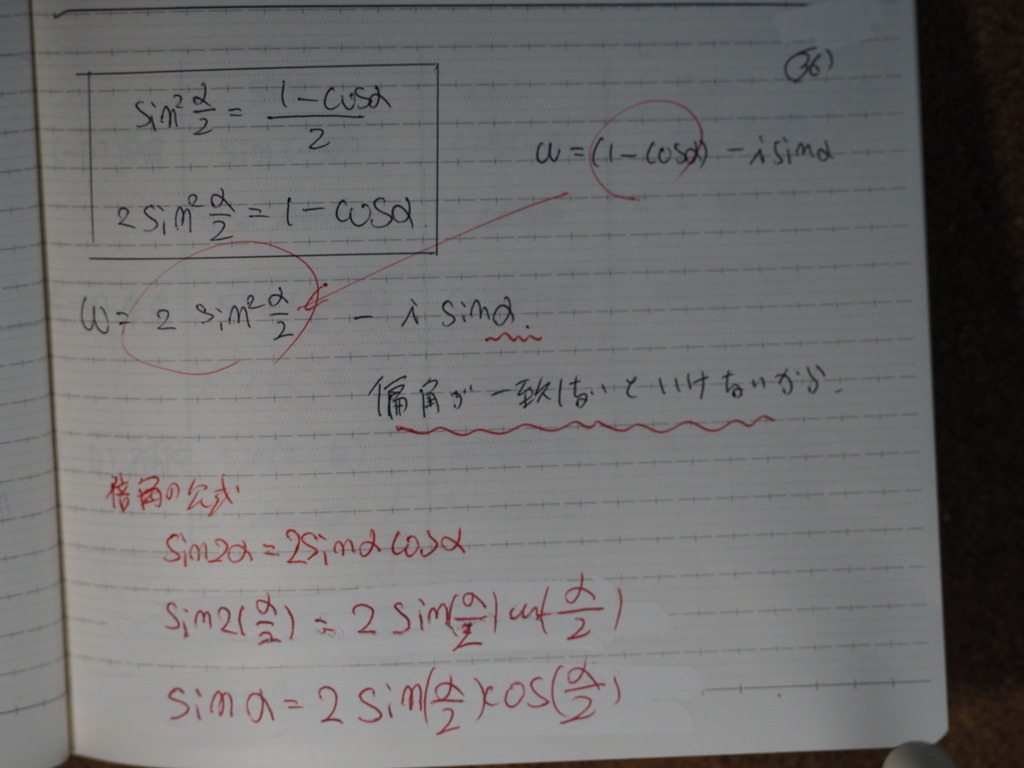 (36)
sin²α/2 = (1-cosα)/2
ω = (1-cosα) - i sinα
2 sin²α/2 = 1-cosα
ω = 2 sin²α/2 - i sinα.
偏角が一致しないといけないから.
倍角の公式
sin2α = 2sinα cosα
sin2(α/2) = 2 sin(α/2) cos(α/2)
sinα = 2 sin(α/2)×cos(α/2)